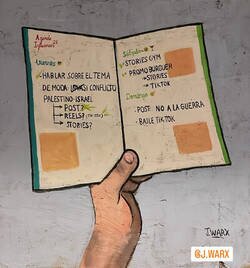 Agenda
Viernes
HABLAR SOBRE EL TEMA
DE MODA: CONFLICTO
PALESTINO-ISRAEL
POST?
REELS?
STORIES?
Sábado
STORIES GYM
PROMO BURGUER
STORIES
TIKTOK
Domingo
POST NO A LA GUERRA
BAILE TIKTOK
J.WARX
@J.WARX